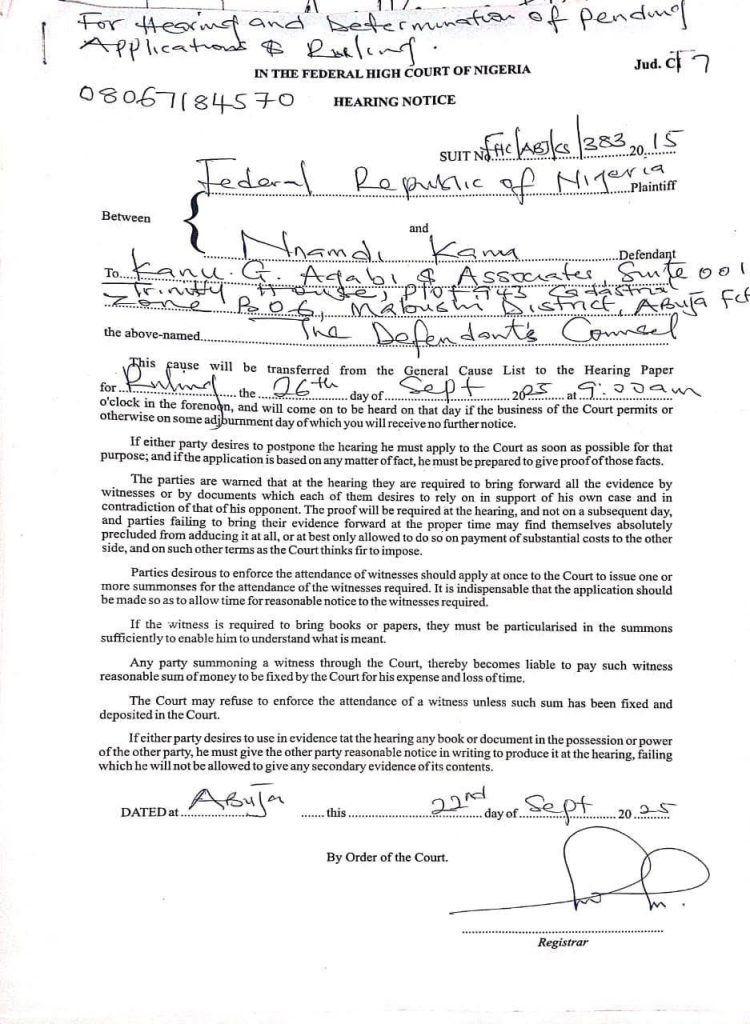 For Hearing and Determination of pending
Applications & Ruling.
IN THE FEDERAL HIGH COURT OF NIGERIA
Jud. CT 7
08067184570
HEARING NOTICE
SUIT No FHC/ABJ/CS/383 2015
Federal Republic of Nigeria
Plaintiff
Between
and
Nnamdi Kanu
Defendant
To Kanu. G. Agabi & Associates, Suite 001
Trinity House, Plot 943 Cadastral
Zone B06, Mabushi District, Abuja FCT
the above-named The Defendant's Counsel
This cause will be transferred from the General Cause List to the Hearing Paper
for Ruling the 26th day of Sept 2025 at 9:00am
o'clock in the forenoon, and will come on to be heard on that day if the business of the Court permits or
otherwise on some adjournment day of which you will receive no further notice.
If either party desires to postpone the hearing he must apply to the Court as soon as possible for that
purpose; and if the application is based on any matter of fact, he must be prepared to give proof of those facts.
The parties are warned that at the hearing they are required to bring forward all the evidence by
witnesses or by documents which each of them desires to rely on in support of his own case and in
contradiction of that of his opponent. The proof will be required at the hearing, and not on a subsequent day,
and parties failing to bring their evidence forward at the proper time may find themselves absolutely
precluded from adducing it at all, or at best only allowed to do so on payment of substantial costs to the other
side, and on such other terms as the Court thinks fir to impose.
Parties desirous to enforce the attendance of witnesses should apply at once to the Court to issue one or
more summonses for the attendance of the witnesses required. It is indispensable that the application should
be made so as to allow time for reasonable notice to the witnesses required.
If the witness is required to bring books or papers, they must be particularised in the summons
sufficiently to enable him to understand what is meant.
Any party summoning a witness through the Court, thereby becomes liable to pay such witness
reasonable sum of money to be fixed by the Court for his expense and loss of time.
The Court may refuse to enforce the attendance of a witness unless such sum has been fixed and
deposited in the Court.
If either party desires to use in evidence tat the hearing any book or document in the possession or power
of the other party, he must give the other party reasonable notice in writing to produce it at the hearing, failing
which he will not be allowed to give any secondary evidence of its contents.
DATED at Abuja this 22nd day of Sept 2025
By Order of the Court.
Registrar